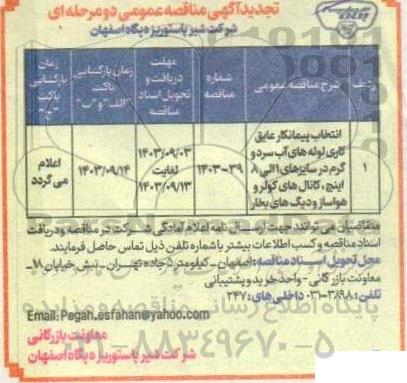 تجدید آگهی مناقصه عمومی دو مرحله ای
شرکت شیر پاستوریزه پگاه اصفهان
ردیف
شرح مناقصه عمومی
شماره مناقصه
مهلت دریافت و تحویل اسناد مناقصه
زمان بازگشایی پاکت "الف" و "ب"
زمان بازگشایی پاکت "ج"
۱
انتخاب پیمانکار عایق
کاری لوله های آب سرد و
گرم در سایزهای ۱ الی ۸
اینچ، کانال های کولر و
هواساز و دیگ های بخار
۱۴۰۳-۳۹
۱۴۰۳/۰۹/۰۳
لغایت
۱۴۰۳/۰۹/۱۳
۱۴۰۳/۰۹/۱۴
اعلام
می گردد
متقاضیان می توانند جهت ارسال نامه اعلام آمادگی شرکت در مناقصه و دریافت
اسناد مناقصه و کسب اطلاعات بیشتر با شماره تلفن ذیل تماس حاصل فرمایند.
محل تحویل اسناد مناقصه: اصفهان_ کیلومتر ۵ جاده تهران_ نبش خیابان ۱۸_
معاونت بازرگانی - واحد خرید و پشتیبانی
تلفن: ۳۸۹۸-۰۳۱ داخلی های: ۲۴۷
Email: Pegah.esfahan@yahoo.com
معاونت بازرگانی
شرکت شیر پاستوریزه پگاه اصفهان
پایگاه اطلاع رسانی مناقصه و مزایده
۰۲۱-۸۸۳۴۹۶۷۰-۵